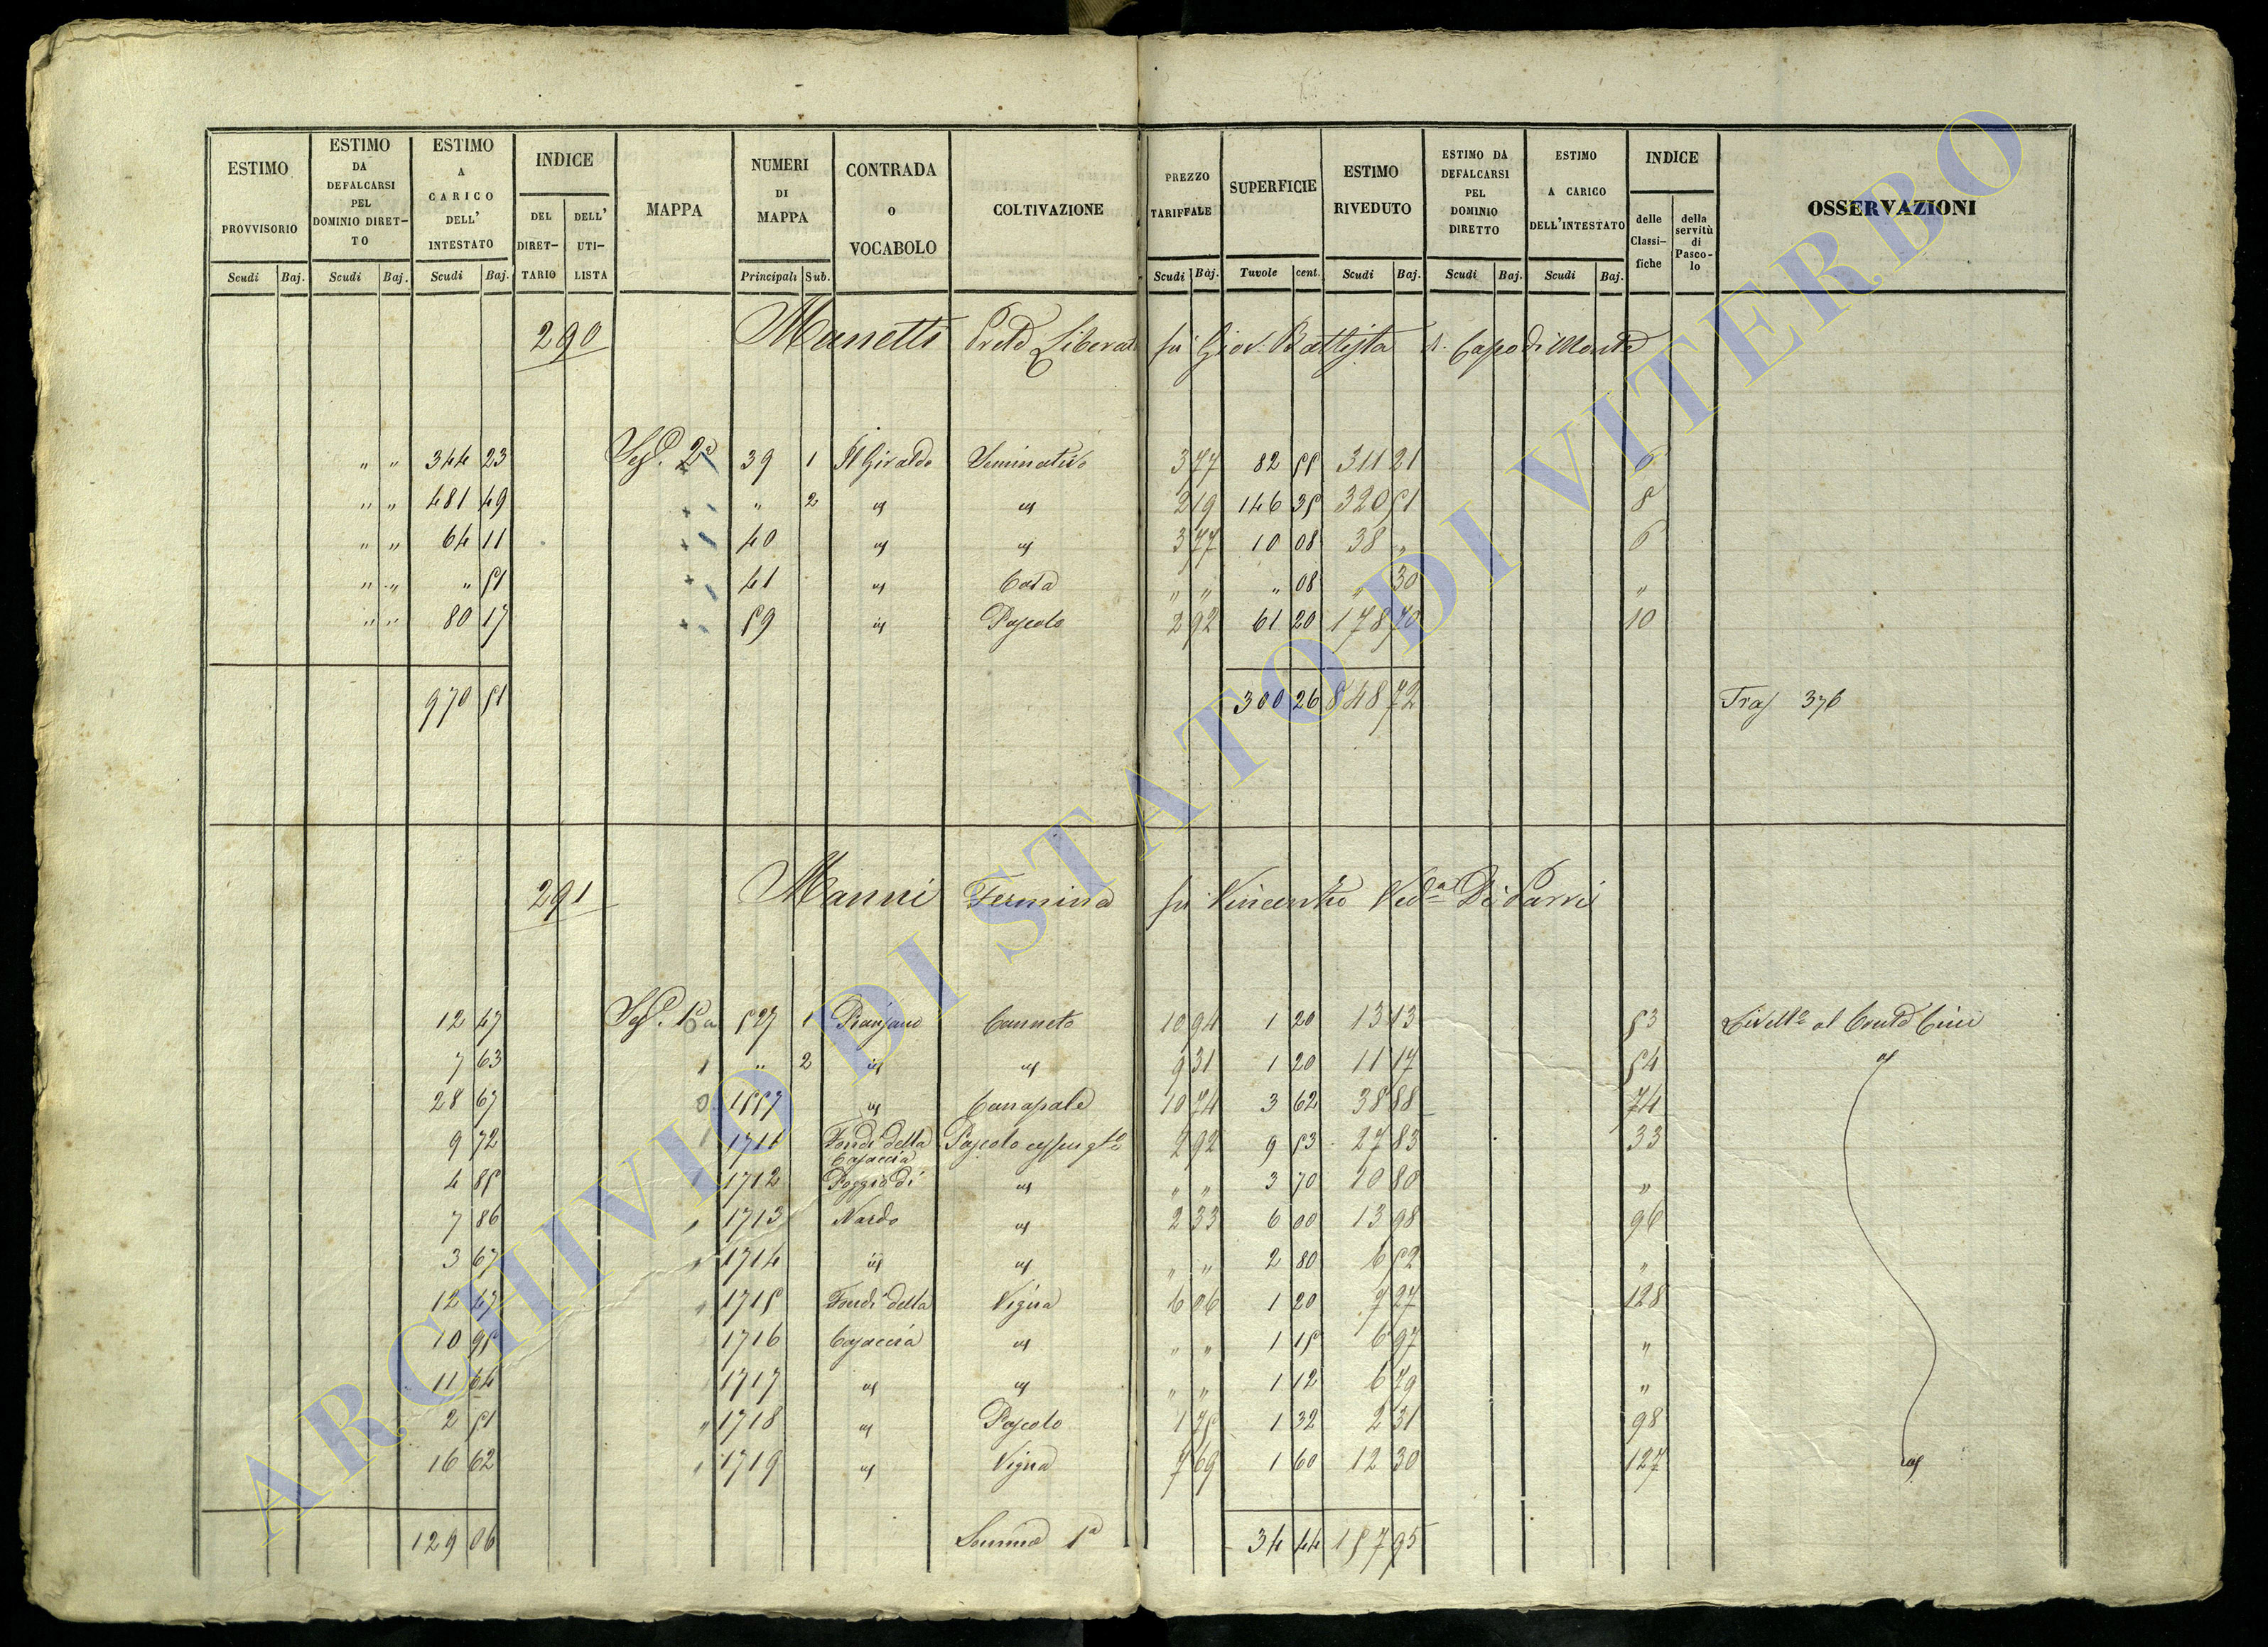 ESTIMO PROVVISORIO Scudi Baj.
ESTIMO DA DEFALCARSI PEL DOMINIO DIRETTO Scudi Baj.
ESTIMO A CARICO DELL' INTESTATO Scudi Baj.
INDICE DEL DIRETTARIO DELL' UTILISTA
MAPPA
NUMERI DI MAPPA Principali Sub.
CONTRADA O VOCABOLO
COLTIVAZIONE
PREZZO TARIFFALE Scudi Baj.
SUPERFICIE Tavole cent.
ESTIMO RIVEDUTO Scudi Baj.
ESTIMO DA DEFALCARSI PEL DOMINIO DIRETTO Scudi Baj.
ESTIMO A CARICO DELL'INTESTATO Scudi Baj.
INDICE delle Classifiche della servitù di Pascolo
OSSERVAZIONI
290 Manetti Prete Liberato fu Gio. Battista di Capodimonte
" " 344 23 Sez. 2a 39 1 Il Giraldo Seminativo 3 77 82 55 311 21 6
" " 481 49 " " 2 id id 2 19 146 35 320 51 8
" " 64 11 " 40 id id 3 77 10 08 38 " 6
" " " 51 " 41 id Casa " " " 08 " 30 "
" " 80 17 " 59 id Pascolo 2 92 61 20 178 70 10
970 51 300 26 848 72 Tras 376
291 Manni Fermina fu Vincenzo Veda Di Parri
12 47 Sez. 1a 527 1 Pianjano Canneto 10 94 1 20 13 13 53 Livella al Conte Cini
7 63 " " 2 id id 9 31 1 20 11 17 54 id
28 67 1557 id Canapale 10 74 3 62 38 88 74
9 72 1711 Fondi della Casaccia Pascolo 2 92 9 53 27 83 33
4 85 1712 Poggio di id " " 3 70 10 80 "
7 86 1713 Nardo id 2 33 6 00 13 98 96
3 67 1714 id id " " 2 80 6 52 "
12 47 1715 Fondi della Vigna 6 06 1 20 7 27 128
10 95 1716 Casaccia id " " 1 15 6 97 "
11 64 1717 id id " " 1 12 6 79 "
2 51 1718 id Pascolo 1 75 1 32 2 31 98
16 62 1719 id Vigna 7 69 1 60 12 30 127 id
129 06 Somma 1a 34 44 157 95
ARCHIVIO DI STATO DI VITERBO